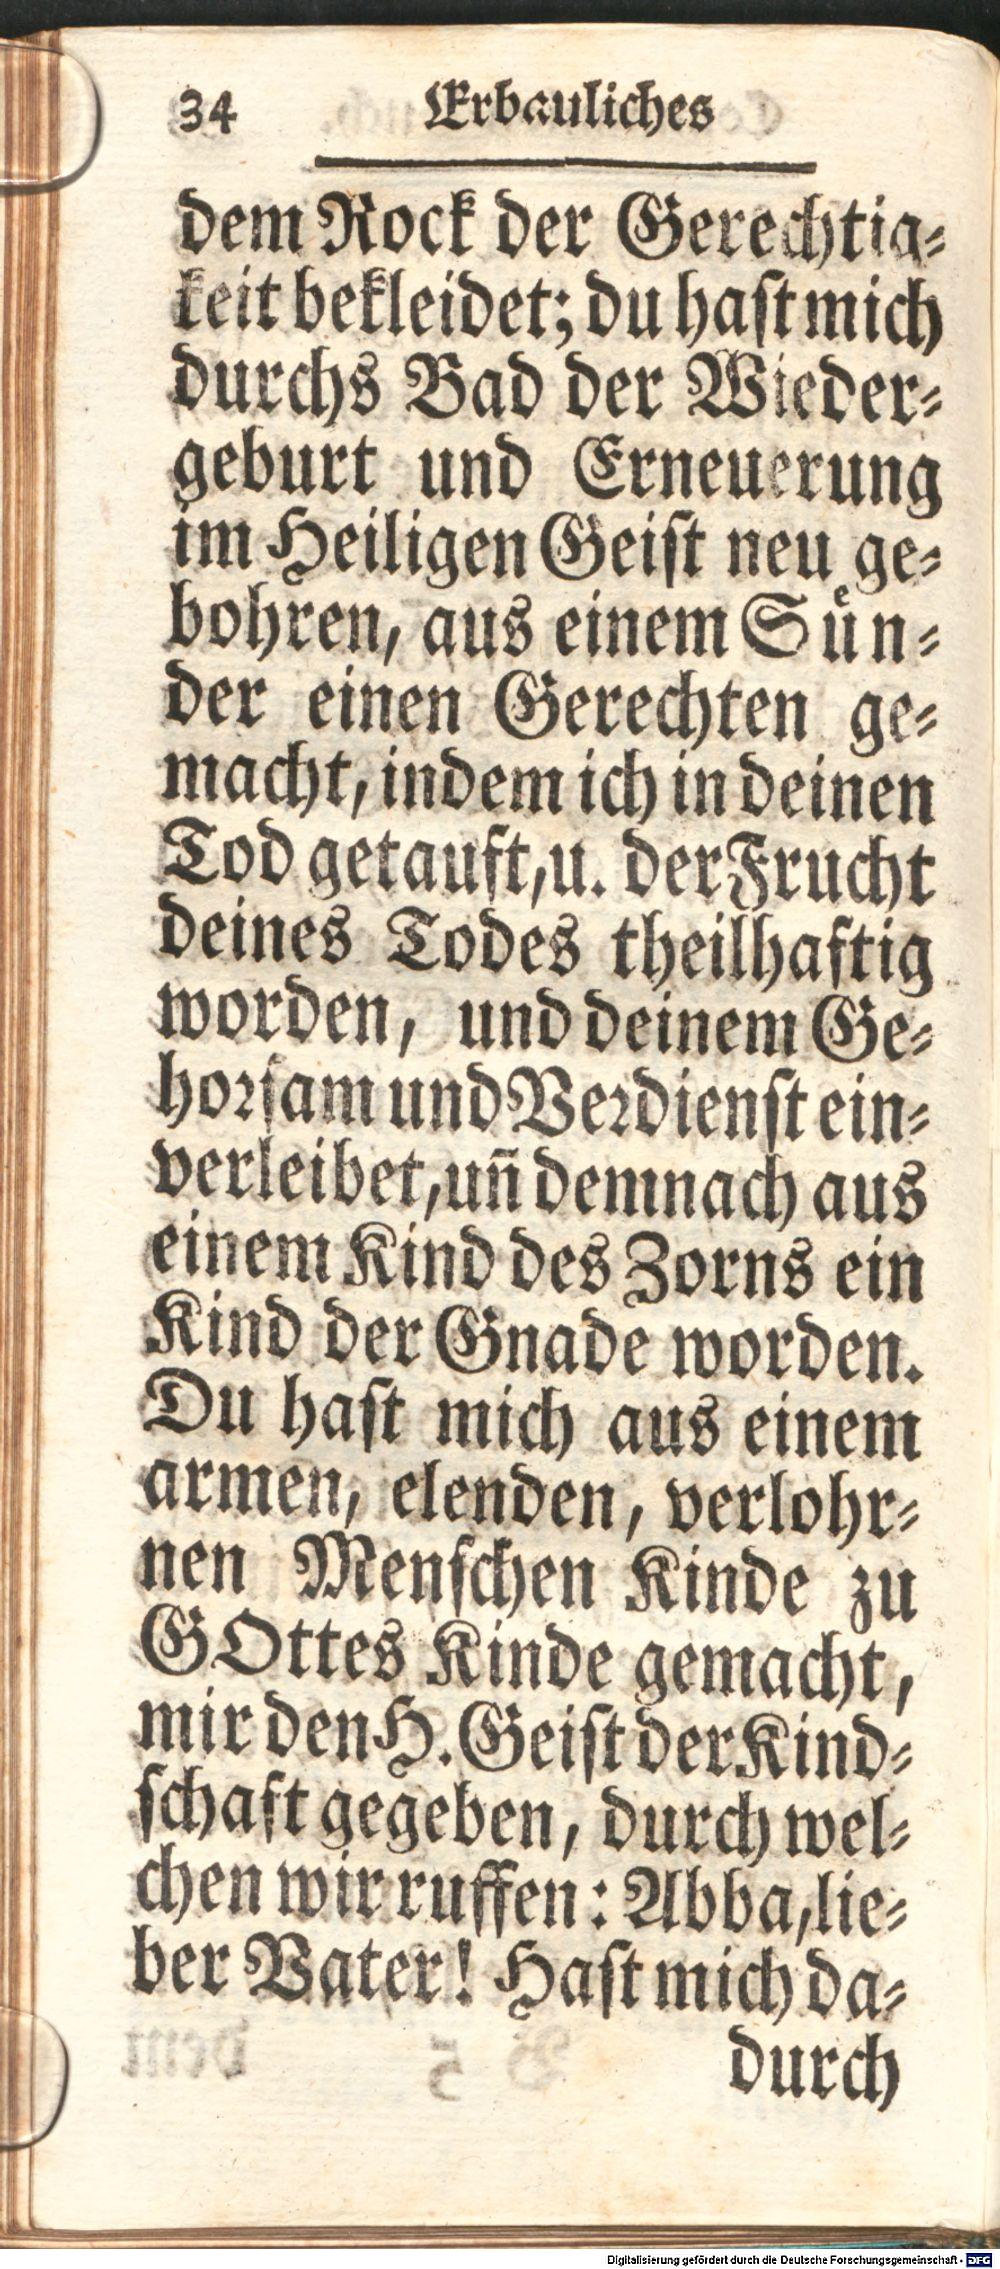 34 Erbauliches
dem Rock der Gerechtig⸗
keit bekleidet; du haſt mich
durchs Bad der Wieder⸗
geburt und Erneuerung
im Heiligen Geiſt neu ge⸗
bohren, aus einem Suͤn⸗
der einen Gerechten ge⸗
macht, indem ich in deinen
Tod getauft, u. der Frucht
deines Todes theilhaftig
worden, und deinem Ge⸗
horſam und Verdienſt ein⸗
verleibet, uñ demnach aus
einem Kind des Zorns ein
Kind der Gnade worden.
Du haſt mich aus einem
armen, elenden, verlohr⸗
nen Menſchen Kinde zu
GOttes Kinde gemacht,
mir den H. Geiſt der Kind⸗
ſchaft gegeben, durch wel⸗
chen wir ruffen: Abba, lie⸗
ber Vater! Haſt mich da⸗
durch
Digitalisierung gefördert durch die Deutsche Forschungsgemeinschaft - DFG